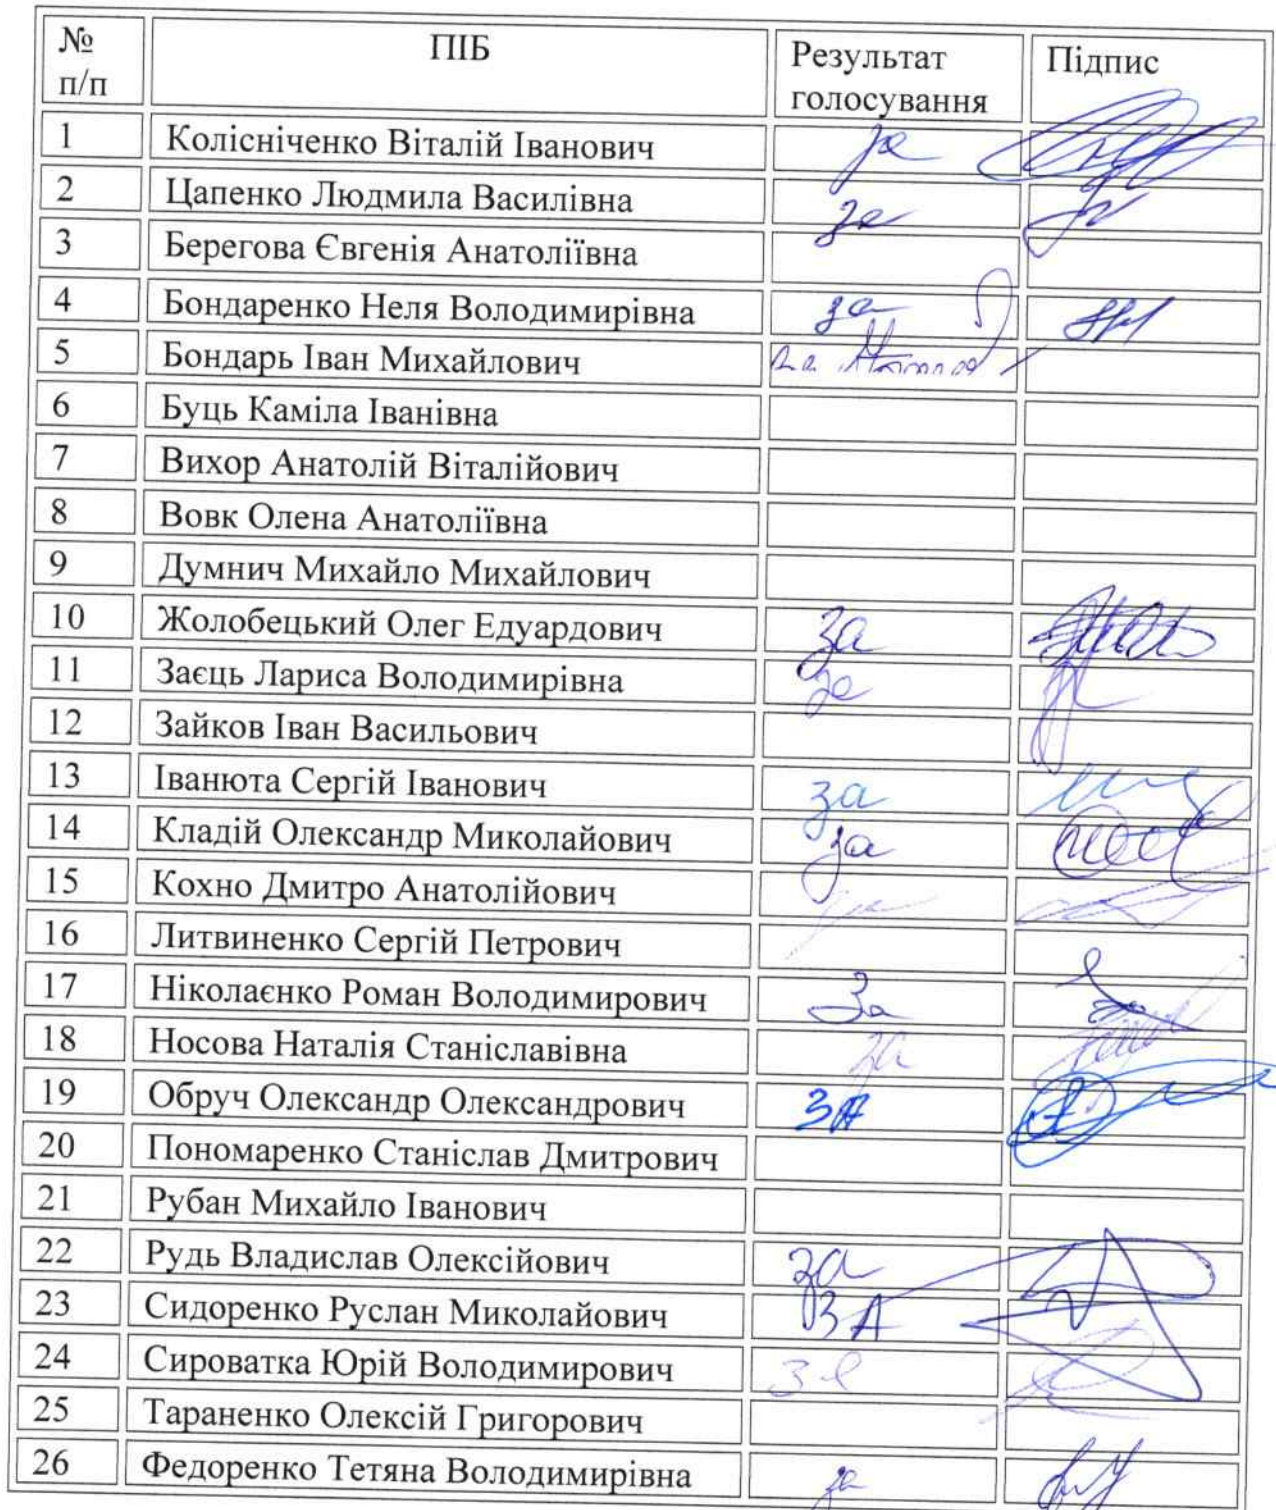 № п/п ПІБ Результат голосування Підпис
1 Колісніченко Віталій Іванович за
2 Цапенко Людмила Василівна за
3 Берегова Євгенія Анатоліївна
4 Бондаренко Неля Володимирівна за
5 Бондарь Іван Михайлович
6 Буць Каміла Іванівна
7 Вихор Анатолій Віталійович
8 Вовк Олена Анатоліївна
9 Думнич Михайло Михайлович
10 Жолобецький Олег Едуардович за
11 Заєць Лариса Володимирівна за
12 Зайков Іван Васильович
13 Іванюта Сергій Іванович за
14 Кладій Олександр Миколайович за
15 Кохно Дмитро Анатолійович за
16 Литвиненко Сергій Петрович
17 Ніколаєнко Роман Володимирович За
18 Носова Наталія Станіславівна за
19 Обруч Олександр Олександрович ЗА
20 Пономаренко Станіслав Дмитрович
21 Рубан Михайло Іванович
22 Рудь Владислав Олексійович за
23 Сидоренко Руслан Миколайович ЗА
24 Сироватка Юрій Володимирович за
25 Тараненко Олексій Григорович
26 Федоренко Тетяна Володимирівна за